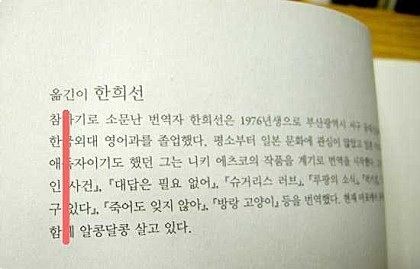 옮긴이 한희선
참하기로 소문난 번역자 한희선은 1976년생으로 부산광역시 서구
한국외대 영어과를 졸업했다. 평소부터 일본 문화에 관심이 많았고 일본
애독자이기도 했던 그는 니키 에츠코의 작품을 계기로 번역을 시작했다.
인 사건』, 『대답은 필요 없어』, 『슈거리스 러브』, 『루팡의 소식』,
구 있다』, 『죽어도 잊지 않아』, 『방랑 고양이』 등을 번역했다. 현재
함께 알콩달콩 살고 있다.